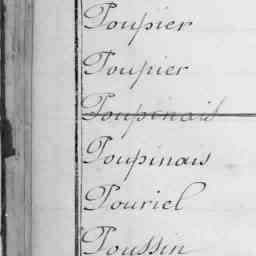 Poupier
Poupier
Poupinais
Poupinais
Pouriel
Poussin